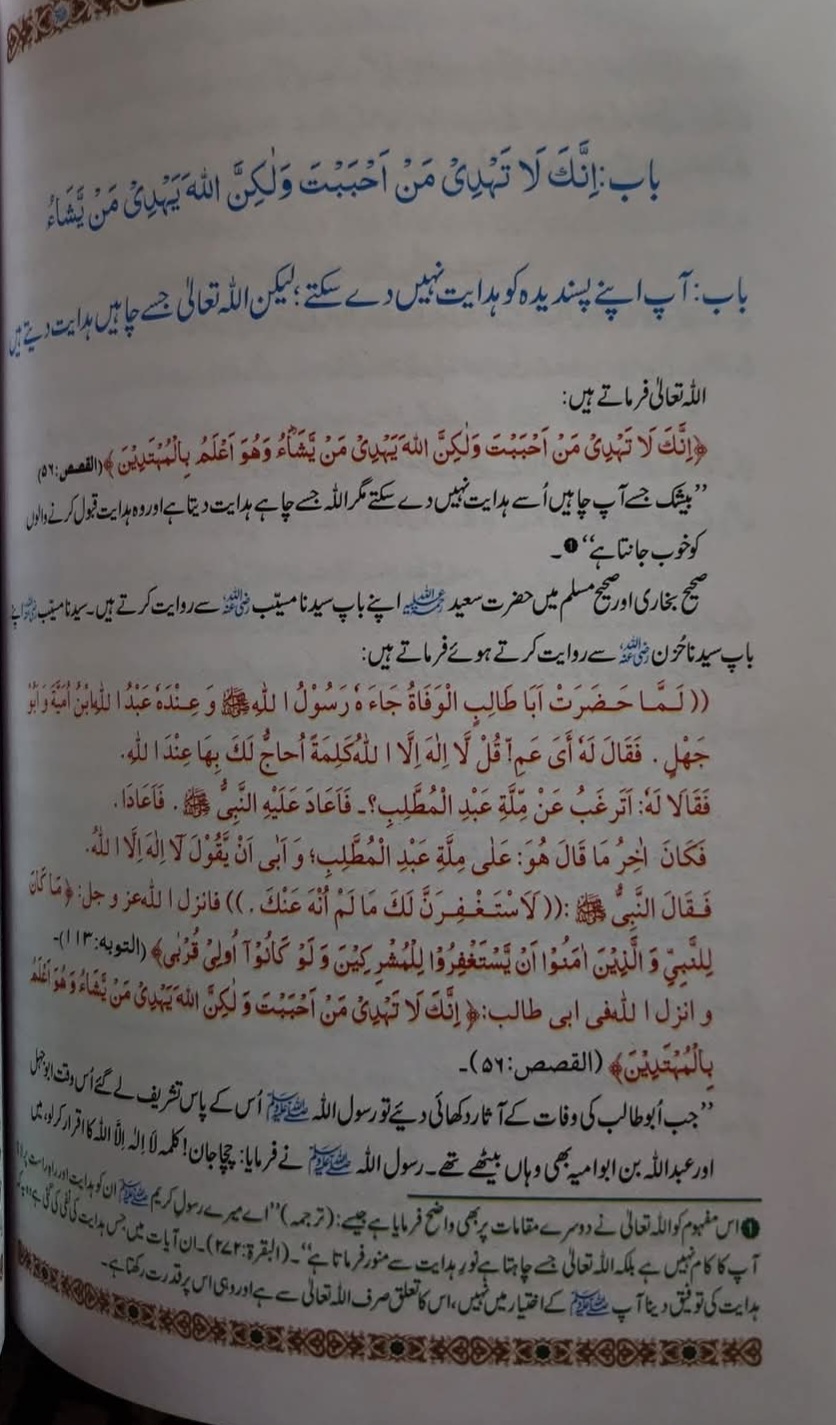 باب: اِنَّكَ لَا تَهْدِىْ مَنْ اَحْبَبْتَ وَلٰكِنَّ اللهَ يَهْدِىْ مَنْ يَّشَاءُ
باب: آپ اپنے پسندیدہ کو ہدایت نہیں دے سکتے؛ لیکن اللہ تعالیٰ جسے چاہیں ہدایت دیتے ہیں
اللہ تعالیٰ فرماتے ہیں:
﴿اِنَّكَ لَا تَهْدِىْ مَنْ اَحْبَبْتَ وَلٰكِنَّ اللهَ يَهْدِىْ مَنْ يَّشَآءُ وَهُوَ اَعْلَمُ بِالْمُهْتَدِيْنَ﴾ (القصص:۵۶)
’’بیشک جسے آپ چاہیں اُسے ہدایت نہیں دے سکتے مگر اللہ جسے چاہے ہدایت دیتا ہے اور وہ ہدایت قبول کرنے والوں
کو خوب جانتا ہے‘‘ ❶۔
صحیح بخاری اور صحیح مسلم میں حضرت سعید رحمۃ اللہ علیہ اپنے باپ سیدنا مسیّب رضی اللہ عنہ سے روایت کرتے ہیں۔ سیدنا مسیّب رضی اللہ عنہ اپنے
باپ سیدنا حُزن رضی اللہ عنہ سے روایت کرتے ہوئے فرماتے ہیں:
(( لَمَّا حَضَرَتْ اَبَا طَالِبٍ الْوَفَاةُ جَاءَ هُ رَسُوْلُ ا للهِ ﷺ وَ عِنْدَهُ عَبْدُ ا للهِ ابْنُ اُمَيَّةَ وَ اَبُوْ
جَهْلٍ . فَقَالَ لَهُ أَىْ عَمِ! قُلْ لَّا اِلٰهَ اِلَّا ا للهُ كَلِمَةً اُحاجُّ لَكَ بِهَا عِنْدَ ا للهِ.
فَقَالَا لَهُ: اَتَرغَبُ عَنْ مِلَّةِ عَبْدِ الْمُطَّلِبِ؟۔ فَاَعَادَ عَلَيْهِ النَّبِىُّ ﷺ . فَاَعَادَا.
فَكَانَ اٰخِرُ مَا قَالَ هُوَ: عَلٰى مِلَّةِ عَبْدِ الْمُطَّلِبِ؛ وَ اَبٰى اَنْ يَّقُوْلَ لَا اِلٰهَ اِلَّا ا للهُ.
فَقَالَ النَّبِىُّ ﷺ :(( لَاَسْتَغْفِرَنَّ لَكَ مَا لَمْ اُنْهَ عَنْكَ . )) فانزل ا لله عز و جل: ﴿مَا كَانَ
لِلنَّبِيِّ وَ الَّذِيْنَ اٰمَنُوْا اَنْ يَّسْتَغْفِرُوْا لِلْمُشْرِكِيْنَ وَ لَوْ كَانُوْآ اُولِىْ قُرْبٰى﴾ (التوبه:۱۱۳)۔
و انزل ا لله فى ابى طالب:﴿ اِنَّكَ لَا تَهْدِىْ مَنْ اَحْبَبْتَ وَ لٰكِنَّ اللهَ يَهْدِىْ مَنْ يَّشَاءُ وَ هُوَ اَعْلَمُ
بِالْمُهْتَدِيْنَ﴾ (القصص:۵۶)۔
’’جب اُبو طالب کی وفات کے آثار دکھائی دیئے تو رسول اللہ ﷺ اُس کے پاس تشریف لے گئے اُس وقت ابوجہل
اور عبداللہ بن ابو امیہ بھی وہاں بیٹھے تھے۔ رسول اللہ ﷺ نے فرمایا: چچا جان! کلمہ لَا اِلٰہَ اِلَّا اللہ کا اقرار کر لو، میں
❶ اس مفہوم کو اللہ تعالیٰ نے دوسرے مقامات پر بھی واضح فرمایا ہے جیسے: (ترجمہ) ’’اے میرے رسولِ کریم ﷺ ان کو ہدایت اور راہ راست پر
آپ کا کام نہیں ہے بلکہ اللہ تعالیٰ جسے چاہتا ہے نورِ ہدایت سے منور فرماتا ہے‘‘۔ (البقرۃ:۲۷۲)۔ ان آیات میں جس ہدایت کی نفی کی گئی ہے
ہدایت کی توفیق دینا آپ ﷺ کے اختیار میں نہیں، اس کا تعلق صرف اللہ تعالیٰ سے ہے اور وہی اس پر قدرت رکھتا ہے۔